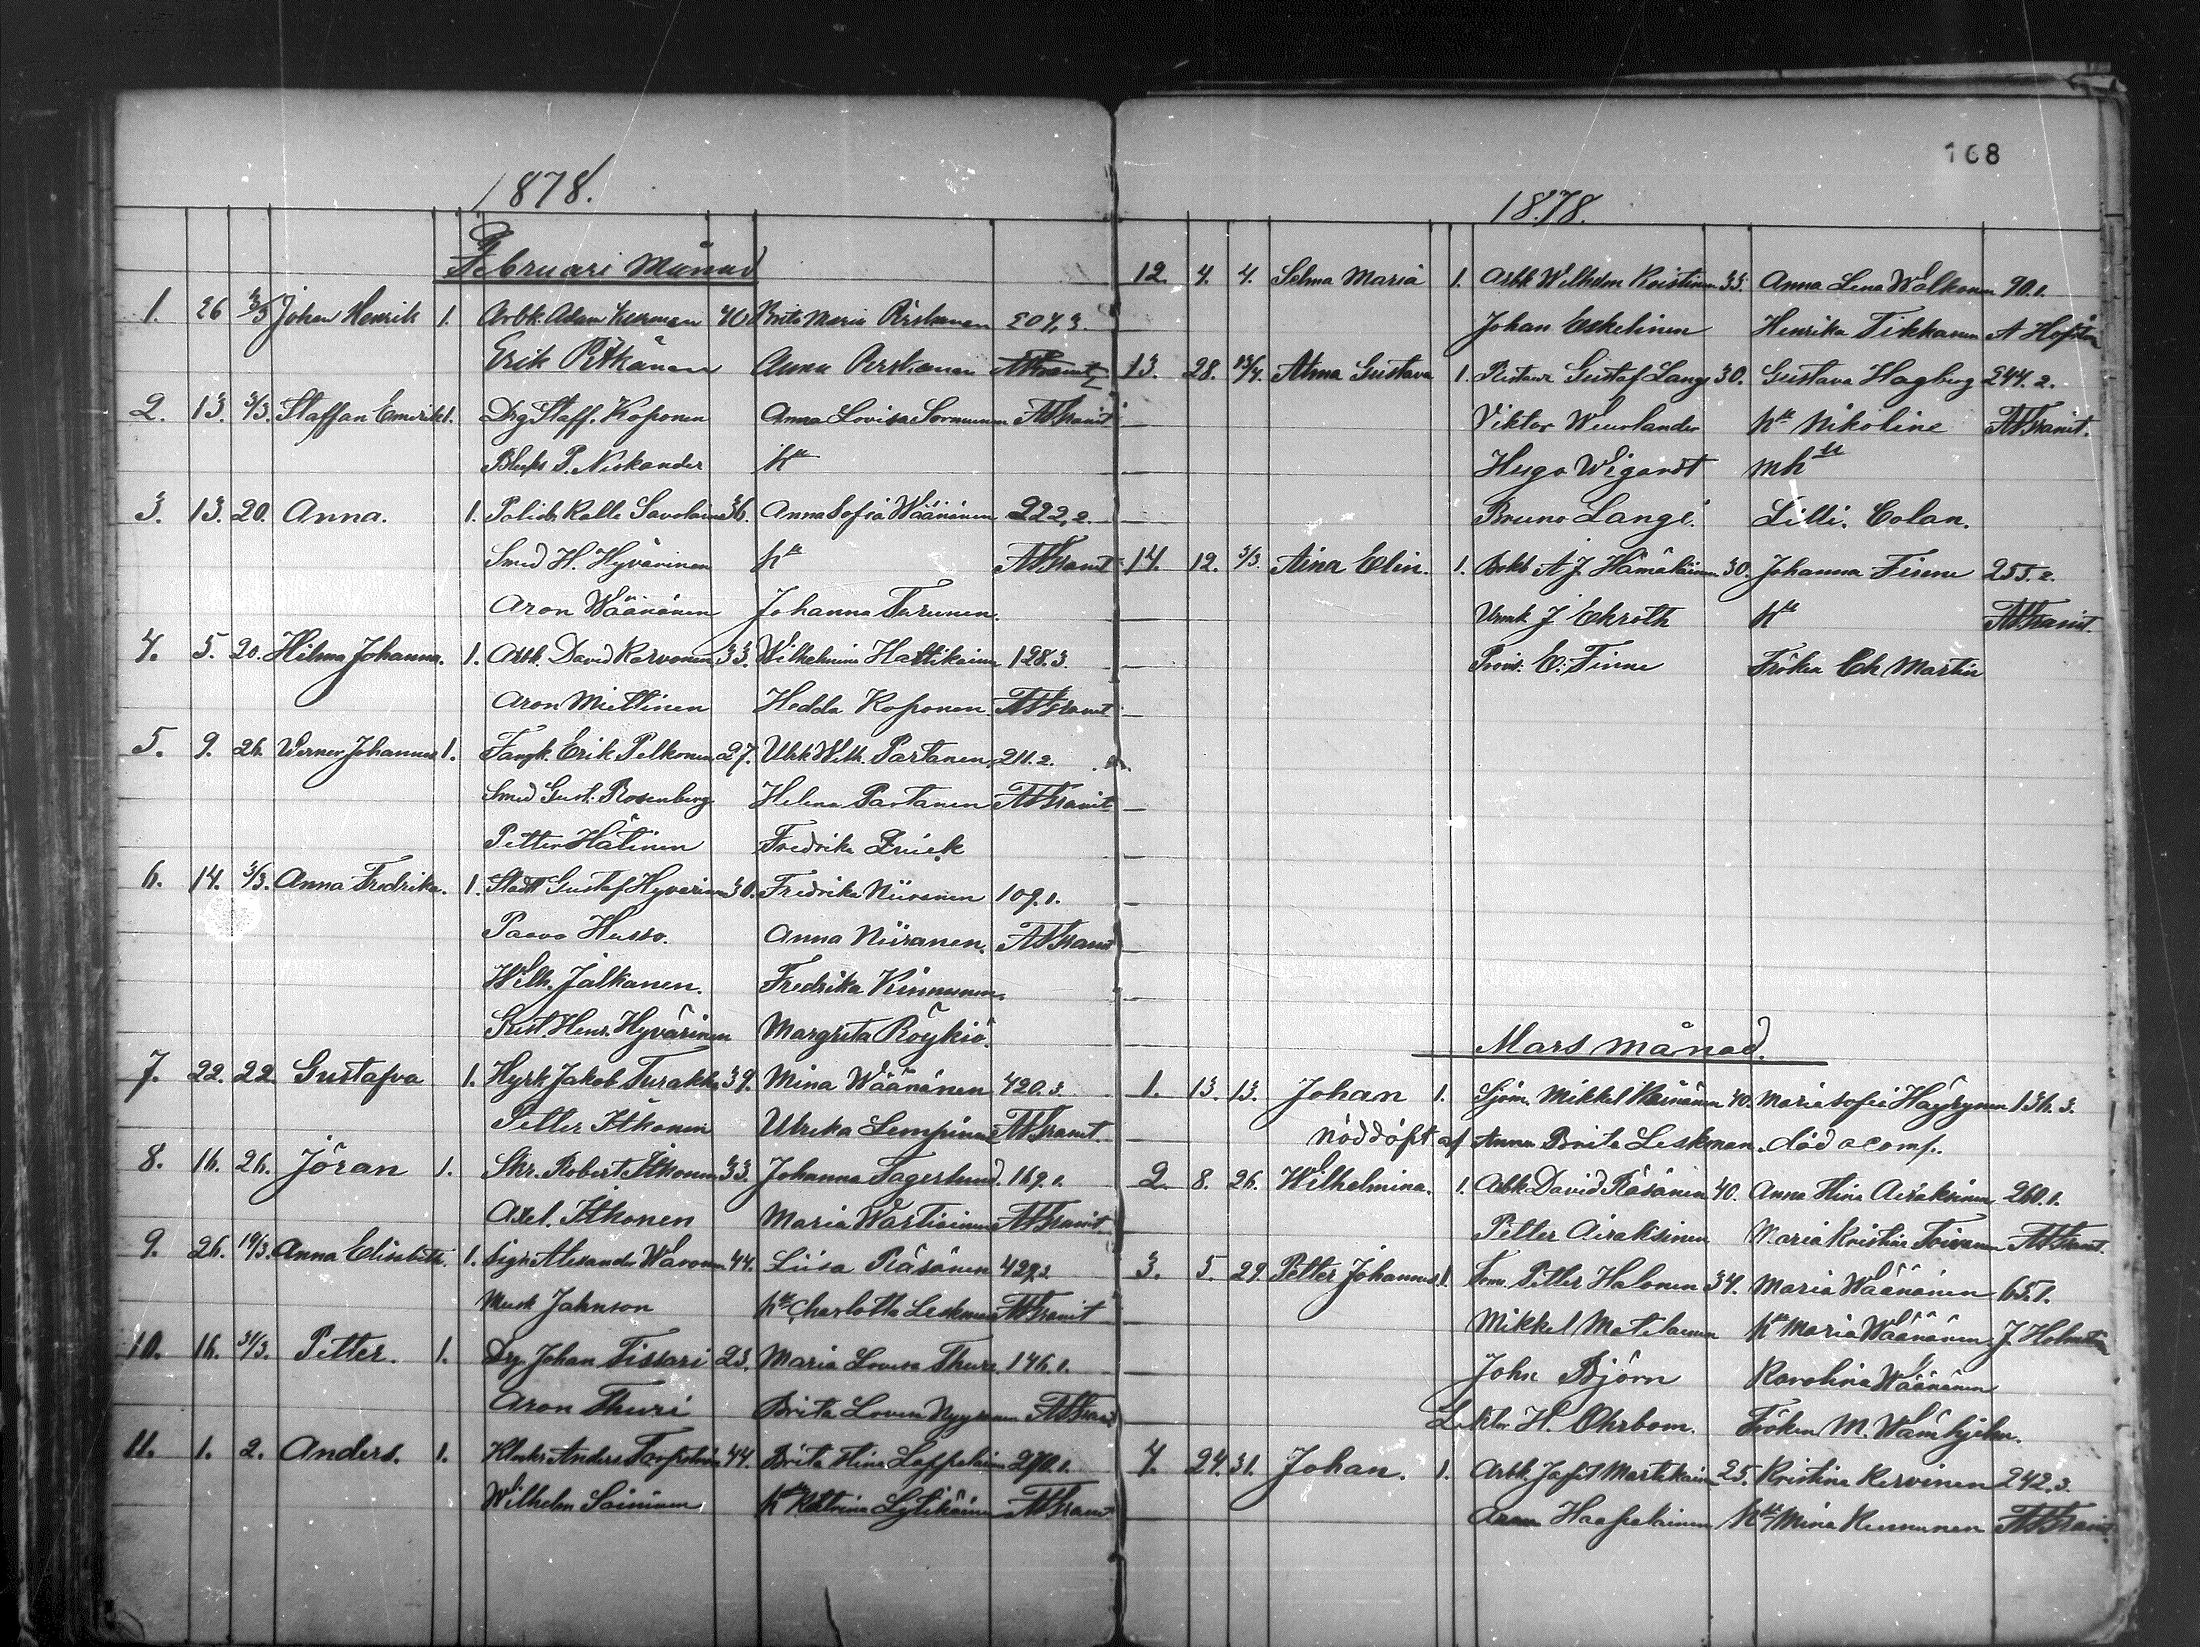 1878.
Februari Månad
1. 26 3/3 Johan Henrik 1. Arbk. Adam 40 Brita Maria Piirhonen 204,3.
Erik Pitkänen Anna A Granit
2. 13. 3/3. Staffan Emerik 1. Drg Staff. Koponen Anna Lovisa Sormunen A Granit
P. Niskander hu
3. 13. 20. Anna. 1. Polisk. Kalle Savolain 36. Anna Sofia Wäänänen 222,2.
Smed H. Hyvärinen hu A Granit
Aron Wäänänen Johanna Turunen.
4. 5. 20. Hilma Johanna. 1. Arbk. David Karvonen 33. Wilhelmina Hattikain 128.3
Aron Miettinen Hedda Koponen A Granit
5. 9. 26. Werner Johannes 1. Fångk. Erik Pelkonen 27. Ulrk Wilh. Partanen. 211.2.
Smed Gust. Rosenberg Helena Partanen A Granit
Petter Hätinen Fredrika
6. 14. 3/3. Anna Fredrika. 1. Gustaf Hyvärinen 30. Fredrika Niiranen 109.1.
Paavo Husso. Anna Niiranen. A Granit
Wilh. Jalkanen. Fredrika Kinnunen.
Henr. Hyvärinen Margreta Röykiö.
7. 22. 22. Gustafva 1. Hyrk Jakob Turakka 39. Mina Wäänänen 420.3.
Petter Itkonen Ulrika Lempinen A Granit.
8. 16. 26. Jöran 1. Skr. Robert Itkonen 33. Johanna Fagerlund. 169.1.
Axel. Itkonen Maria Wartiainen A Granit.
9. 26. 19/3. Anna Elisabeth. 1. Alexander Waronen 44. Liisa Räsänen 429.2.
Musk Jahnson hu Charlotta Leskinen A Granit
10. 16. 31/3. Petter. 1. Drg. Johan Tissari 23. Maria Lovisa Thure. 146.1.
Aron Thuri Brita Lovisa Nyyssonen A Granit
11. 1. 2. Anders. 1. Anders 44. Brita Stina Lappalain 270.1.
Wilhelm Soininen hu Katrina Lyytikäinen A Granit
168
1878.
12. 4. 4. Selma Maria 1. Arbk Wilhelm Koistinen 33. Anna Lena Wälkonen 90.1.
Johan Eskelinen Henrika Tikkanen A Hofström
13. 28. 13/4. Alma Gustava 1. Restaur Gustaf Lange 30. Gustava Hagberg 244.2.
Viktor Weurlander hu Nikoline A Granit.
Hugo Wigardt mhu
Bruno Langé. Lilli. Colan.
14. 12. 3/3. Aina Elin. 1. Bokb A J. Hämäläinen 30. Johanna Finne 255.2.
Urmk J Ekroth hu A Granit.
Prov. E. Finne Fröken Ch Martin
Mars månad.
1. 13. 13. Johan 1. Sjöm. Mikkel Räisänen 40. Maria Sofia Häyrynen 136.3.
nöddöpt af Anna Brita Leskinen. död a comp.
2. 8. 26. Wilhelmina. 1. Arbk. David Räsänen 40. Anna Stina Airaksinen 260.1.
Petter Airaksinen Maria Kristina Toivanen A Granit.
3. 5. 29. Petter Johannes 1. Petter Halonen 34. Maria Wäänänen 65.1.
Mikkel Matilainen hu Maria Wäänänen J. Holmström
John Björn Karolina Wäänänen
Lektor H. Ohrbom. Fröken M. Wåhlhjelm.
4. 24. 31. Johan. 1. Arbk. Jafet Martikain 25. Kristina Kervinen 242.3.
Aron Haapalainen hu Mina Kinnunen A Granit